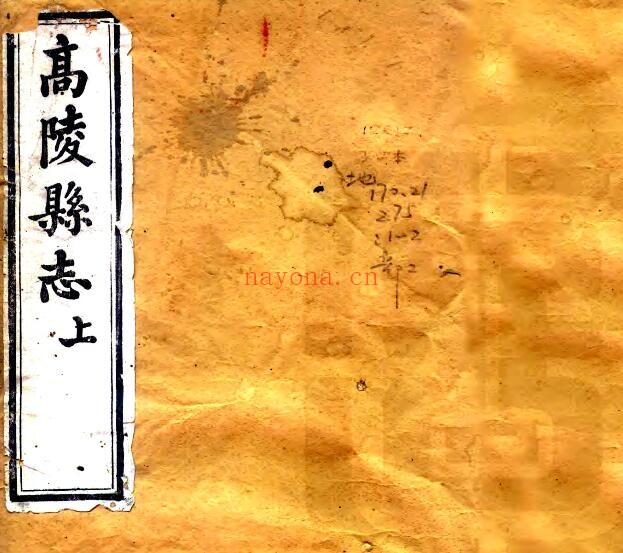 高陵縣志上
地
170.21
275
:1-2
nayona.cn